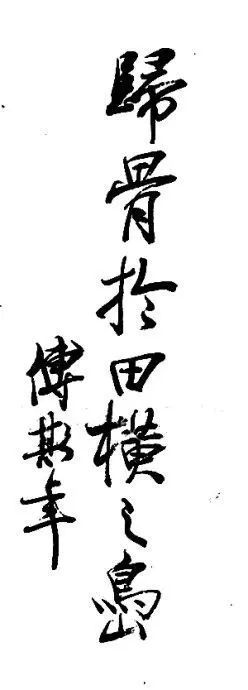 歸骨於田橫之島
傅斯年